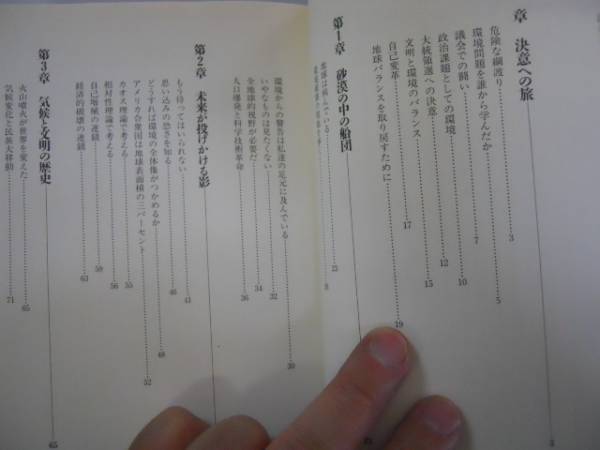 章 決意への旅 3
危険な綱渡り 3
環境問題を誰から学んだか 5
議会での闘い 7
政治課題としての環境 10
大統領選への決意 12
文明と環境のバランス 15
自己変革 17
地球バランスを取り戻すために 19
第1章 砂漠の中の船団
地球は病んでいる 8
23
環境からの警告は私達の足元に及んでいる 30
いやなものは見たくない 32
全地球的視野が必要だ 34
人口爆発と科学技術革命 36
第2章 未来が投げかける影
もう待ってはいられない 41
思い込みの恐さを知る 46
どうすれば環境の全体像がつかめるか 48
アメリカ合衆国は地球表面積の二パーセント 52
カオス理論で考える 55
相対性理論で考える 56
自己増殖の連鎖 59
経済的破壊の連鎖 63
第3章 気候と文明の歴史 65
火山噴火が世界を変えた 65
気候変化と民族大移動 71